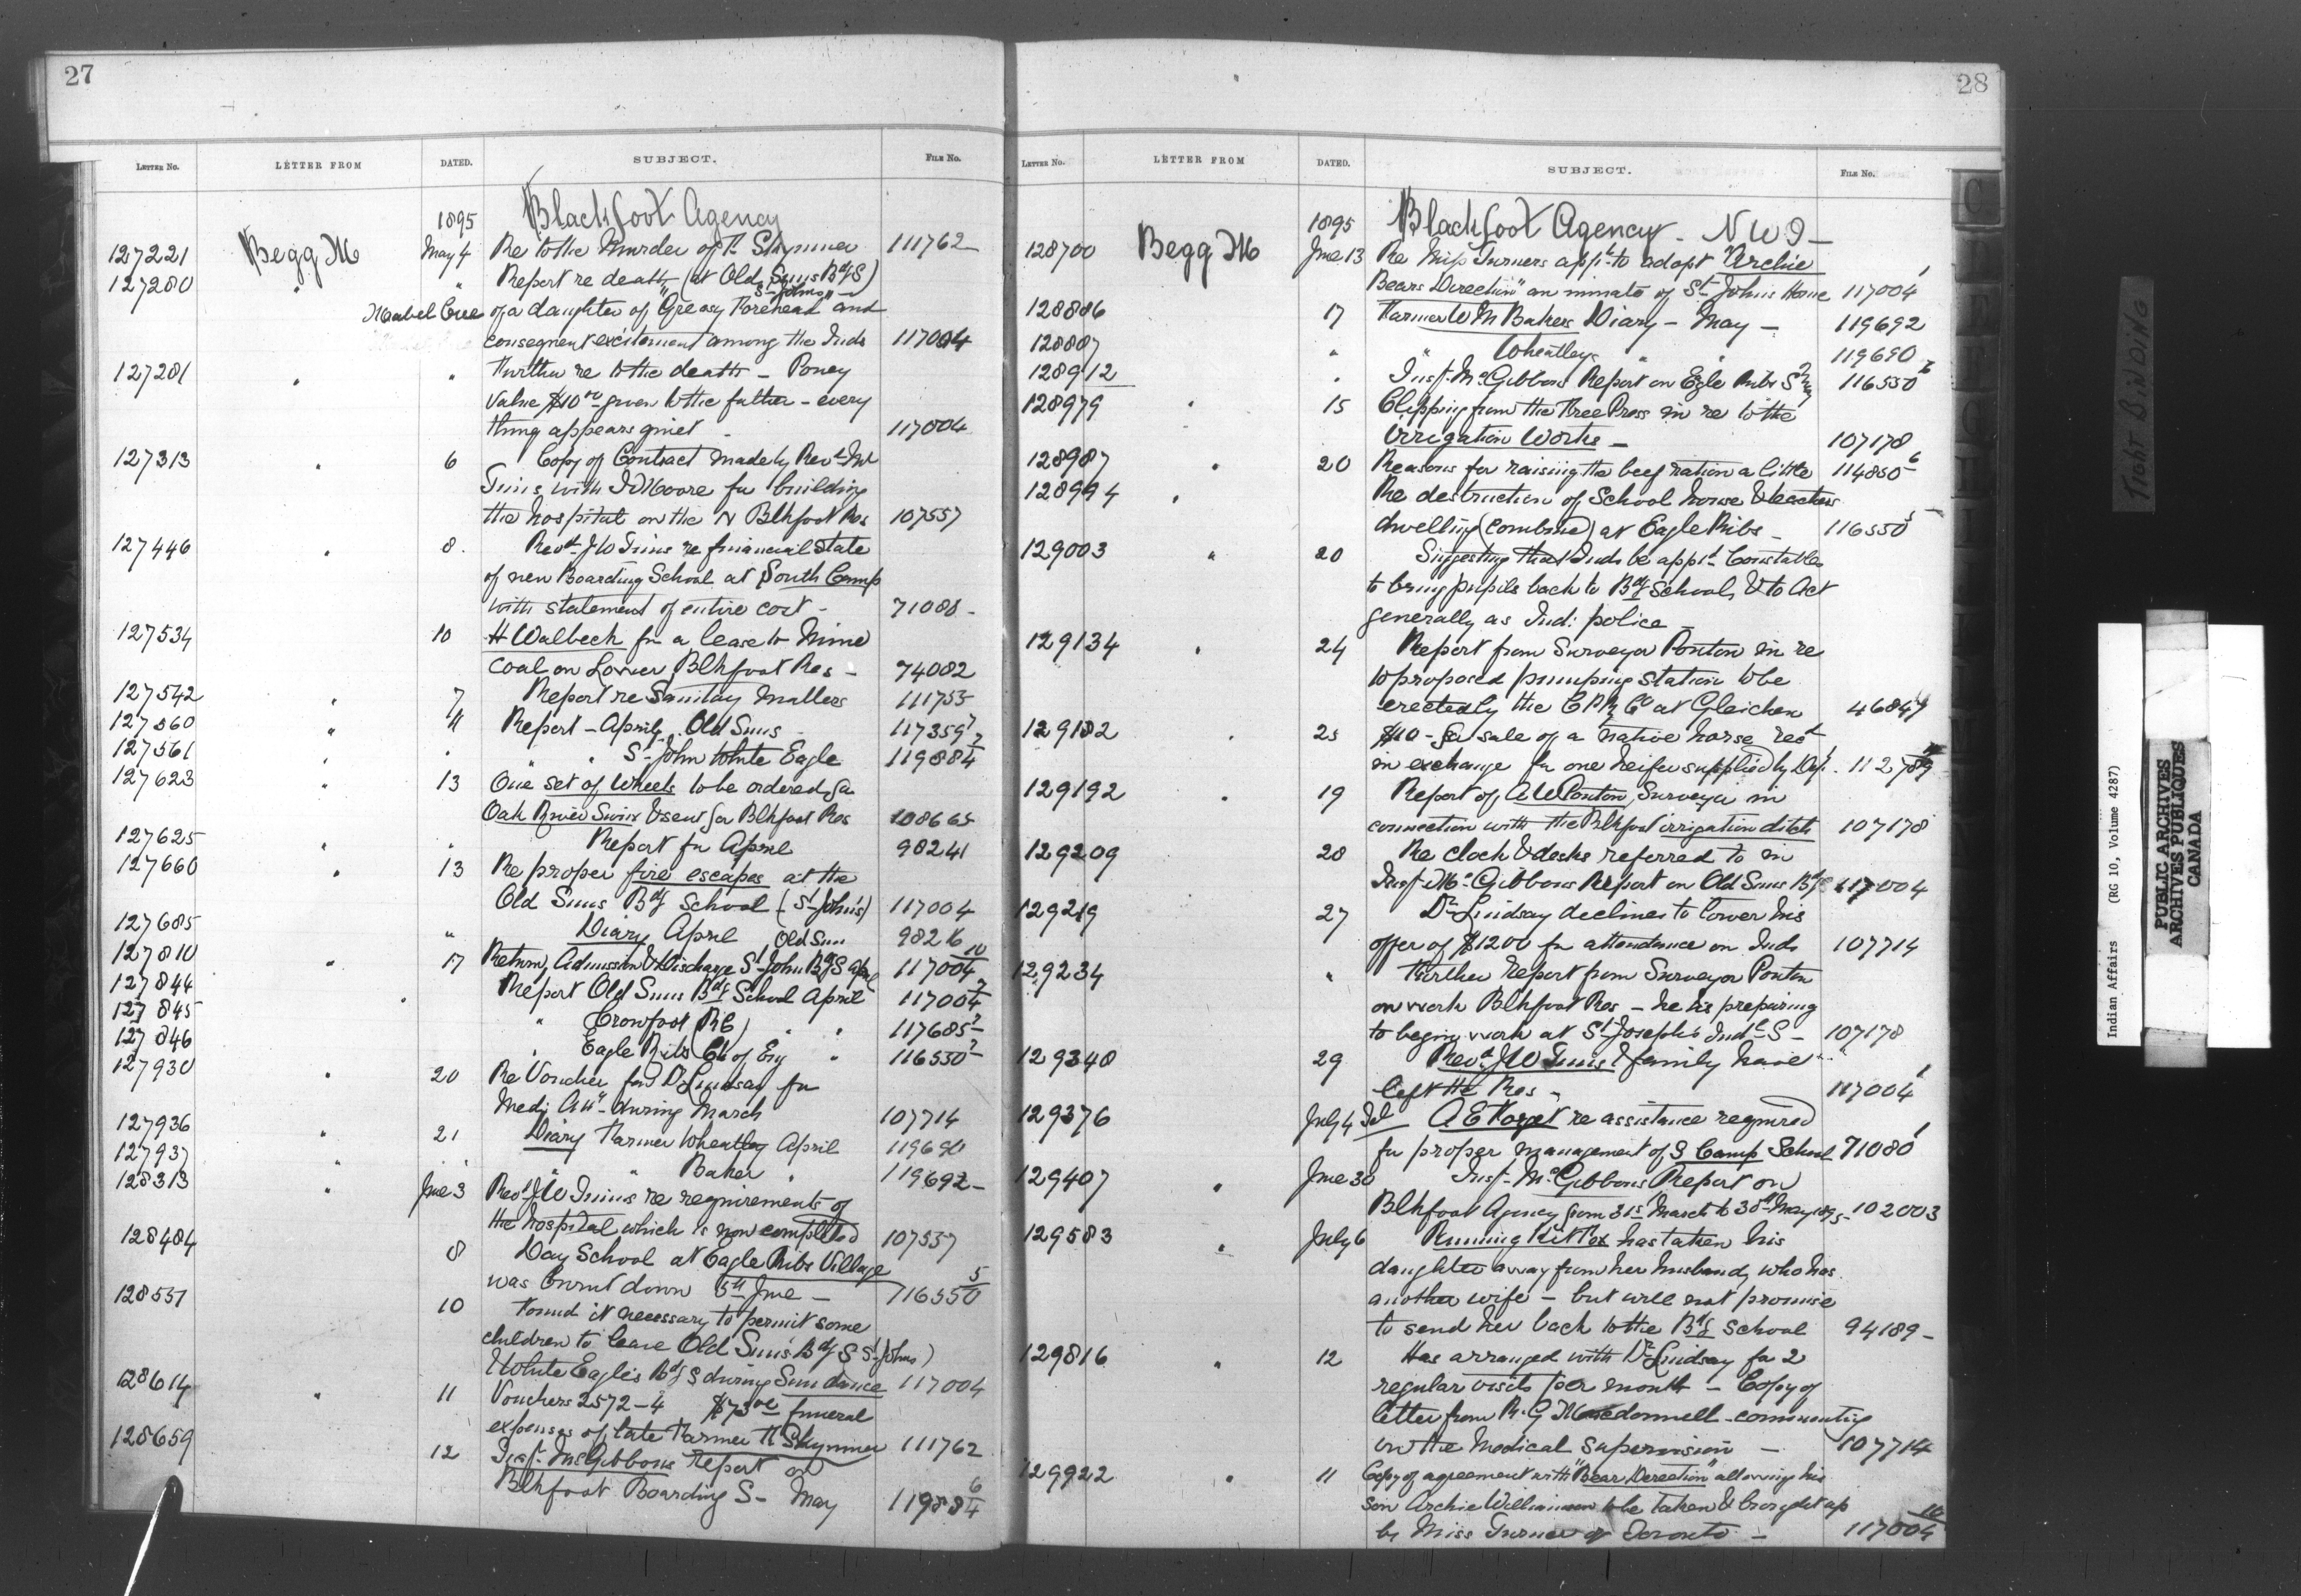 27
LETTER No. LETTER FROM DATED. SUBJECT. FILE No.
1895 Blackfoot Agency
127221 Begg M May 4 Re to the Murder of F. Skynner 111762
127280 " " Report re death (at Old Suns BdgS)
St Johns
Mabel Cree of a daughter of "Greasy Forehead" and
consequent excitement among the Inds 117004
127281 " " Further re to the death - Poney
value $10.00 given to the father - every
thing appears quiet - 117004
127313 " 6 Copy of Contract made by Revd Mr
Tims with J D Moore for building
the hospital on the N Blkfoot Res 107557
127446 " 8. Revd J W Tims re financial state
of new Boarding School at South Camp
with statement of entire cost - 71088 -
127534 10 H Walbech for a lease to mine
coal on Lower Blkfoot Res - 74082
127542 " 7 Report re Sanitary Matters 111755
127560 " 11 Report - April - Old Suns 117359 7
127561 " " " St John White Eagle 119884 7
127623 " 13 One set of Wheels to be ordered for
Oak River Sioux & sent for Blkfoot Res 108665
127625 " " Report for April 98241
127660 " 13 Re proper fire escapes at the
Old Suns Bdg School (St John's) 117004
127685 " Diary April Old Sun 98216
127810 " 17 Return, Admission & Discharge St John BdgS April 117004 10
127844 Report Old Suns Bdg School April 117004 7
127845 " " Crowfoot (RC) " " 117685 7
127846 " Eagle Ribs (Ch of Eng " 116550 7
127930 " 20 Re Voucher for Dr Lindsay for
Medl Attn - during March 107714
127936 " 21 Diary Farmer Wheatley April 119690
127937 " " " Baker " 119692 -
128313 " June 3 Revd J W Tims re requirements of
the hospital which is now completed 107557
128484 8 Day School at Eagle Ribs Village
was burnt down 5th June - 116550 5
128551 10 Found it necessary to permit some
children to leave Old Sun's Bdg S St Johns)
& White Eagle's Bdg S during Sun dance 117004
128614 " 11 Vouchers 2572-4 $73.00 funeral
expenses of late Farmer F Skynner 111762
128659 12 Insp. McGibbons report on
Blkfoot Boarding S - May 119884 6
28
LETTER No. LETTER FROM DATED. SUBJECT. FILE No.
1895 Blackfoot Agency - NWT -
128700 Begg M June 13 Re Miss Turners appn to adopt "Archie
Bears Direction" an inmate of St Johns Home 117004 1
128886 17 Farmer W M Bakers Diary - May - 119692
128887 " " Wheatleys " " 119690
128912 " Insp. McGibbons Report on Egle Ribs S 116550 6
128979 " 15 Clipping from the Free Press in re to the
Irrigation Works - 107178
128987 " 20 Reasons for raising the beef ration a little 114850 6
128994 " Re destruction of School house & teachers
dwelling (combined) at Eagle Ribs - 116550 5
129003 " 20 Suggesting that Inds be appd Constables
to bring pupils back to Bdg Schools & to Act
generally as Ind: police -
129134 " 24 Report from Surveyor Ponton in re
to proposed pumping station to be
erected by the C P R Co at Gleichen 46847
129182 " 25 $10 - for sale of a native horse recd
in exchange for one heifer supplied by Dept. 112789
129192 " 19 Report of A W Ponton, Surveyor in
connection with the Blkfoot irrigation ditch 107178
129209 28 Re clock & desks referred to in
Insp. McGibbons Report on Old Suns BdgS 117004
129219 27 Dr Lindsay declines to lower his
offer of $1200 for attendance on Inds 107714
129234 " Further Report from Surveyor Ponton
on work Blkfoot Res - he is preparing
to begin work at St Joseph's Indl S - 107178
129340 29 Revd J W Tims & family have
left the Res - 117004 1
129376 July 4 A E Forget re assistance required
for proper management of S Camp School 71080 1
129407 " June 30 Insp. McGibbons Report on
Blkfoot Agency from 31st March to 30th May 1895 - 102003
129583 " July 6 Running Kit Fox has taken his
daughter away from her husband, who has
another wife - but will not promise
to send her back to the Bdg School 94189 -
129816 " 12 Has arranged with Dr Lindsay for 2
regular visits per month - Copy of
letter from R. G Macdonnell - commenting
on the Medical Supervision - 107714
129922 " 11 Copy of agreement with "Bear Direction" allowing his
son Archie William to be taken & brought up
by Miss Turner of Toronto - 117004 10
C
D
E
G
H
TIGHT BINDING
Indian Affairs (RG 10, Volume 4287)
PUBLIC ARCHIVES
ARCHIVES PUBLIQUES
CANADA